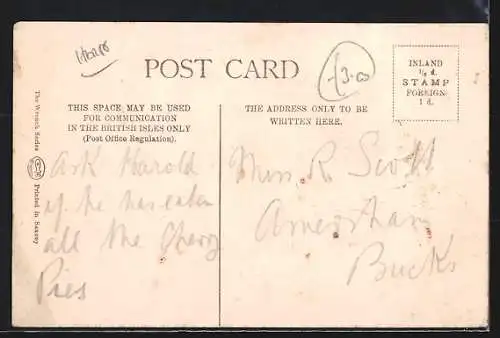 POST CARD
3.00
INLAND
½ d.
STAMP
FOREIGN
1 d.
THIS SPACE MAY BE USED
FOR COMMUNICATION
IN THE BRITISH ISLES ONLY
(Post Office Regulation).
THE ADDRESS ONLY TO BE
WRITTEN HERE.
The Wrench Series
Printed in Saxony
Ask Harold
if he has eaten
all the Cherry
Pies
Miss R. Scott
Amersham
Bucks